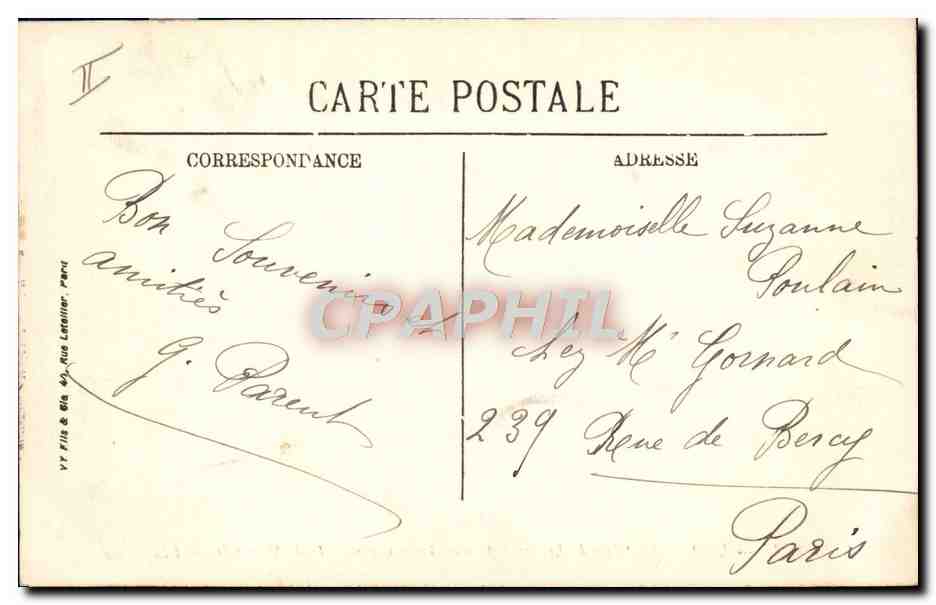 II
CARTE POSTALE
CORRESPONDANCE
Bon
Souvenir et
amitiés
G. Parent
ADRESSE
Mademoiselle Suzanne
Poulain
chez Mr Gornard
239 Rue de Bercy
Paris
CPAPHIL
Fils & Cie Rue Letellier, Paris